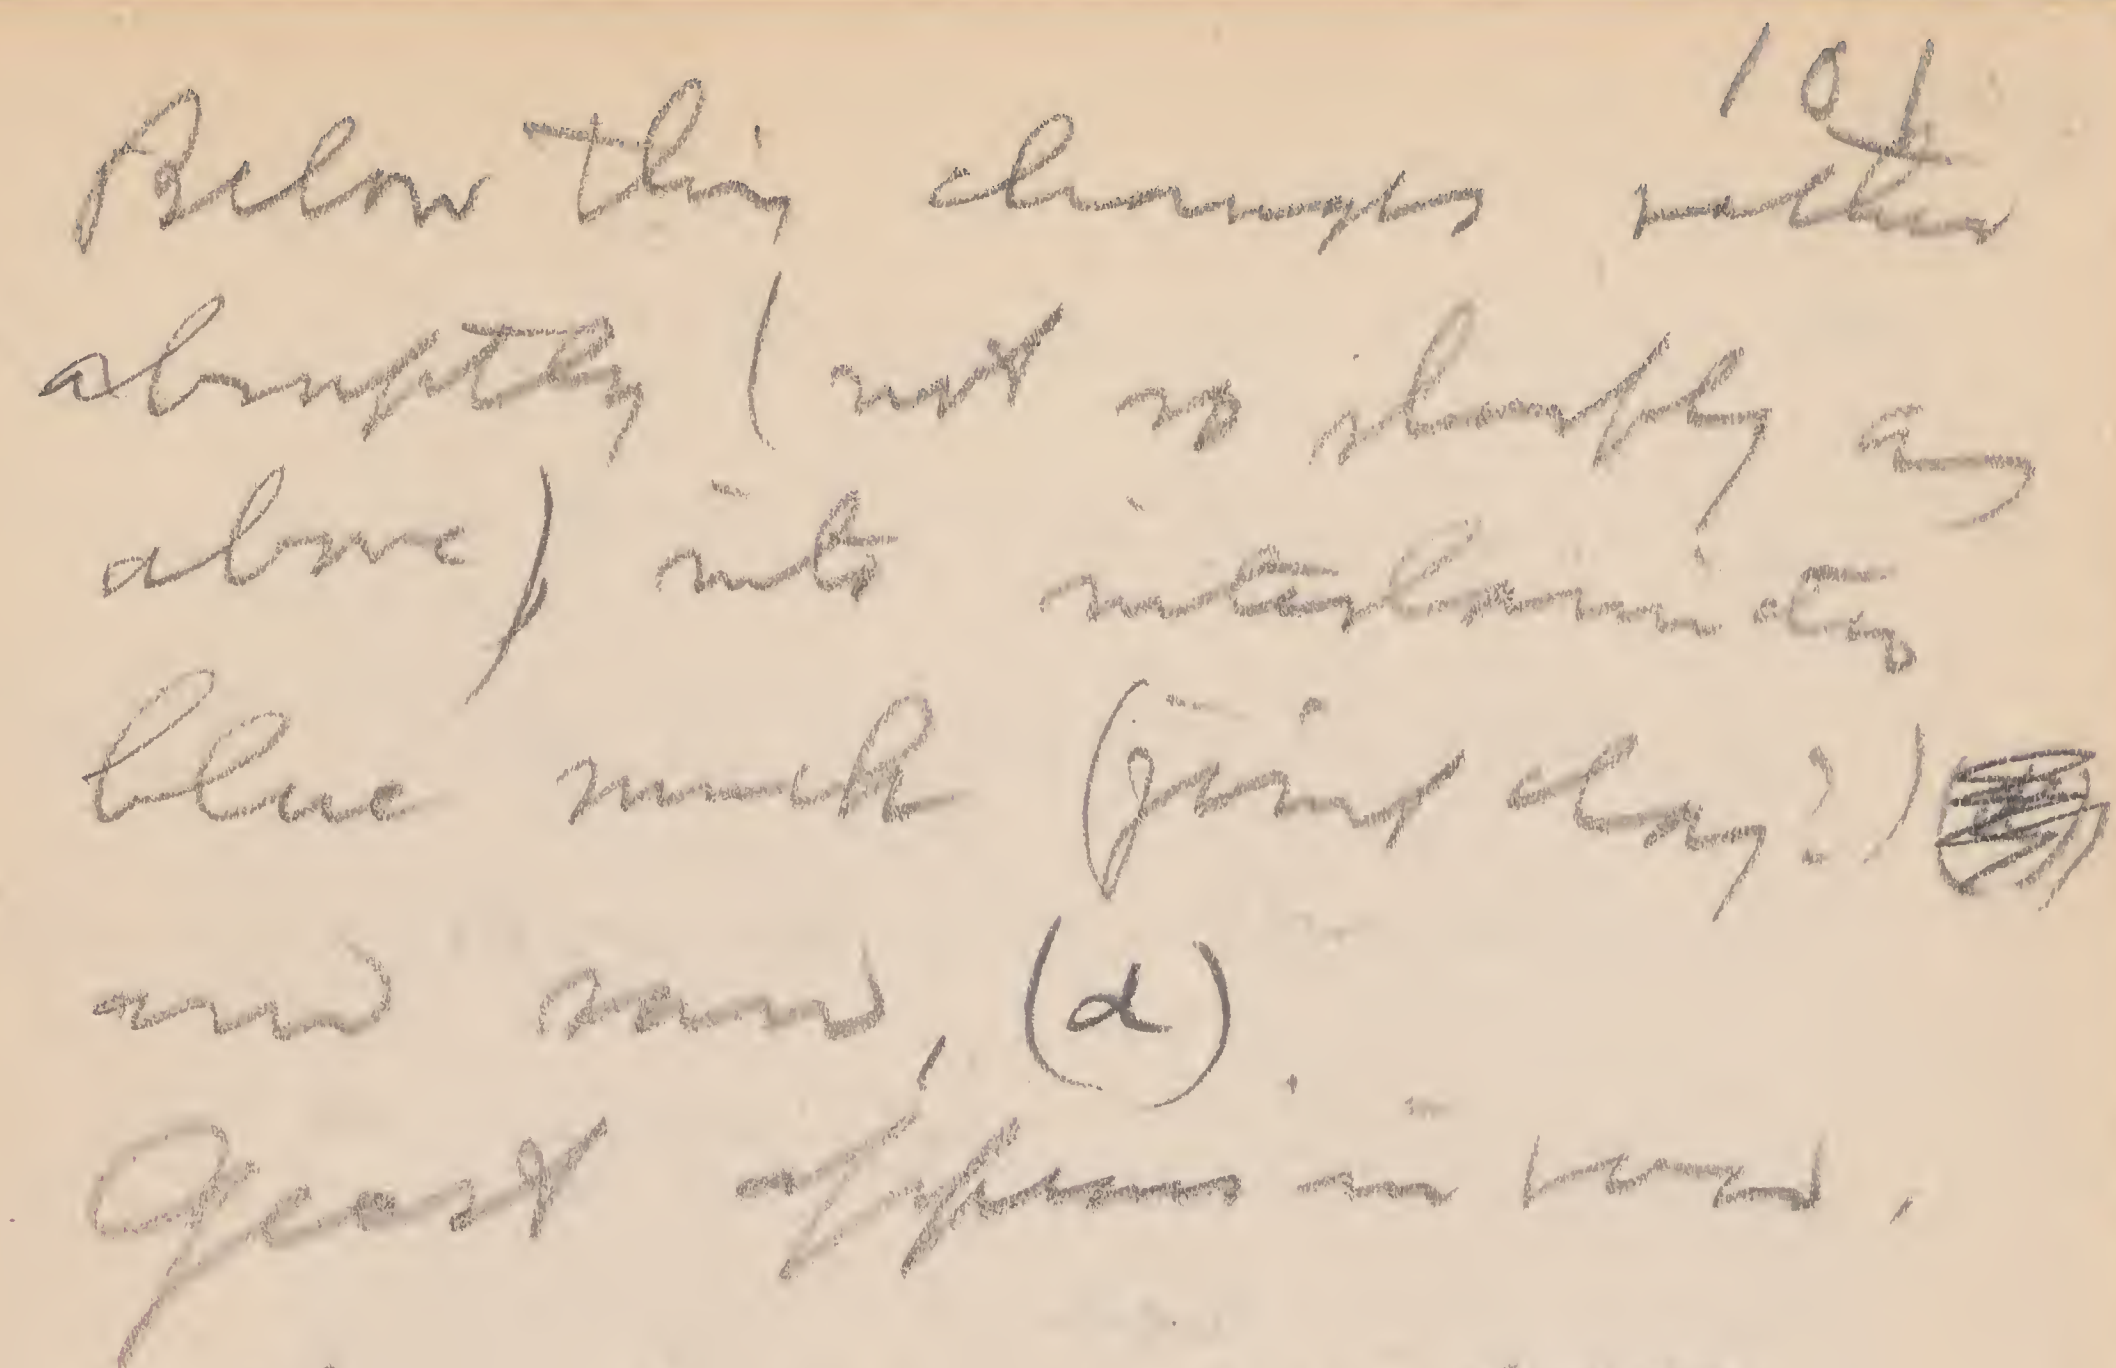 101
Below this changes rather
abruptly (not so sharply as
above) into interlaminated
blue muck (joint clay?)
and sand, (d).
Great in sand,